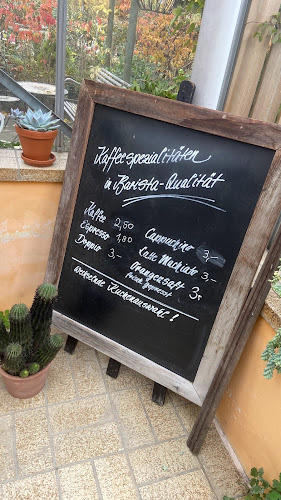 Kaffeespezialitäten
in Barista-Qualität
Kaffee 2,50
Espresso 1,80
Doppio 3,-
Cappuccino 3,-
Latte Machiato 3,-
Orangensaft 3,-
frisch gepresst
wechselnde Kuchenauswahl!